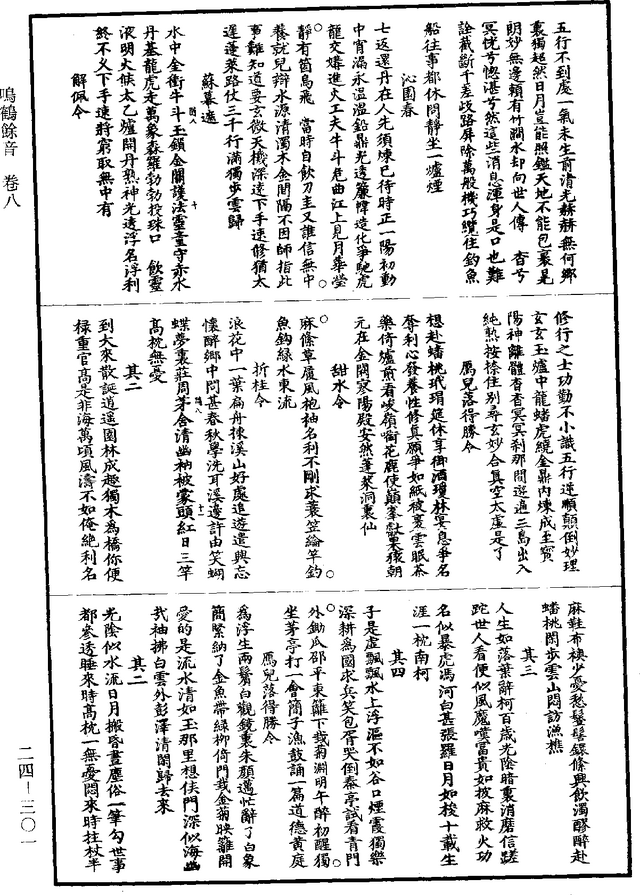 五行不到處一氣未生前清光赫赫無何鄉
裏獨超然日月豈能照鑑天地不能包裹是
朗妙無邊賴有竹澗水却向世人傳　杳兮
冥恍兮惚湛兮然這些消息渾身是口也難
詮截斷千差歧路屏除萬般機巧纜住釣魚
船往事都休問靜坐一爐煙
沁園春
七返還丹在人先須煉已待時正一陽初動
中宵漏永温温鉛鼎光透簾幃造化爭馳虎
龍交媾進火工夫牛斗危曲江上見月華瑩
靜有箇烏飛　當時自飲刀圭又誰信無中
養就兒辯水源清濁木金間隔不因師指此
事難知道要玄微天機深遠下手速修猶太
遲蓬萊路仗三千行滿獨步雲歸
蘇幕遮
水中金衝斗牛玉鎖金關護法靈童守赤水
丹基龍虎走萬象森羅勃勃投珠口　飲靈
液明火候太乙爐開丹熟神光透浮名浮利
終不久下手速將窮取無中有
解佩令
修行之士功勤不小識五行逆順顛倒妙理
玄玄玉爐中龍蟠虎繞金鼎內煉成至寶
陽神離體杳杳冥冥刹那間遊遍三島出入
純熟按捺住別尋玄妙合真空太虛是了
鴈兒落得勝令
想赴蟠桃玳瑁筵休享御酒瓊林宴息爭名
奪利心發養性修真願爭如紙被裹雲眠茶
藥倚爐煎看峻嶺銜花鹿使顛峯獻菓猿朝
元在金闕寥陽殿安然蓬萊洞裏仙
甜水令
麻絛草履風袍袖名利不剛求蓑笠綸竿釣
魚鈎綠水東流
折桂令
浪花中一葉扁舟揀溪山好處追遊遣興忘
懷醉鄉中問甚春秋學洗耳溪邊許由笑蝴
蝶夢裏莊周茅舍清幽衲被蒙頭紅日三竿
高枕無憂
其二
到大來散誕逍遥園林成趣獨木為橋你便
祿重官高是非海萬頃風濤不如俺絶利名
麻鞋布襖少憂愁鬉髻鐶絛興飲濁醪醉赴
蟠桃閑步雲山悶訪漁樵
其三
人生如落葉辭柯百歲光陰暗裏消磨信蹉
跎世人看便似風魔嘆富貴如披麻救火功
名似暴虎馮河白甚張羅日月如梭十載生
涯一枕南柯
其四
子是虛飄飄水上浮漚不如谷口煙霞獨樂
深耕為國求兵笑包胥哭倒秦亭試看青門
外鋤瓜邵平東籬下栽菊淵明午醉初醒獨
坐茅亭打一會簡子漁鼓誦一篇道德黃庭
鴈兒落得勝令
為浮生兩鬢白觀鏡裏朱顔邁忙辭了白象
簡緊納了金魚帶綠柳倚門栽金菊映籬開
愛的是流水清如玉那里想侯門深似海幽
哉袖拂白雲外彭澤清閑歸去來
其二
光陰似水流日月搬昏晝塵俗一筆勾世事
都參透睡來時高枕一無憂悶來時拄杖半
鳴鶴餘音　卷八
二四-三〇一